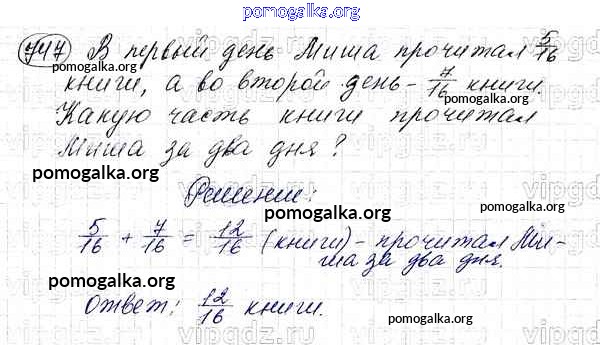 pomogalka.org
747 В первый день Миша прочитал 5/16
pomogalka.org
книги, а во второй день - 7/16 книги.
pomogalka.org
Какую часть книги прочитал
Миша за два дня?
pomogalka.org
Решение:
pomogalka.org
5/16 + 7/16 = 12/16 (книги) - прочитал Ми-
ша за два дня.
pomogalka.org
pomogalka.org
Ответ: 12/16 книги.
pomogalka.org
vipgdz.ru